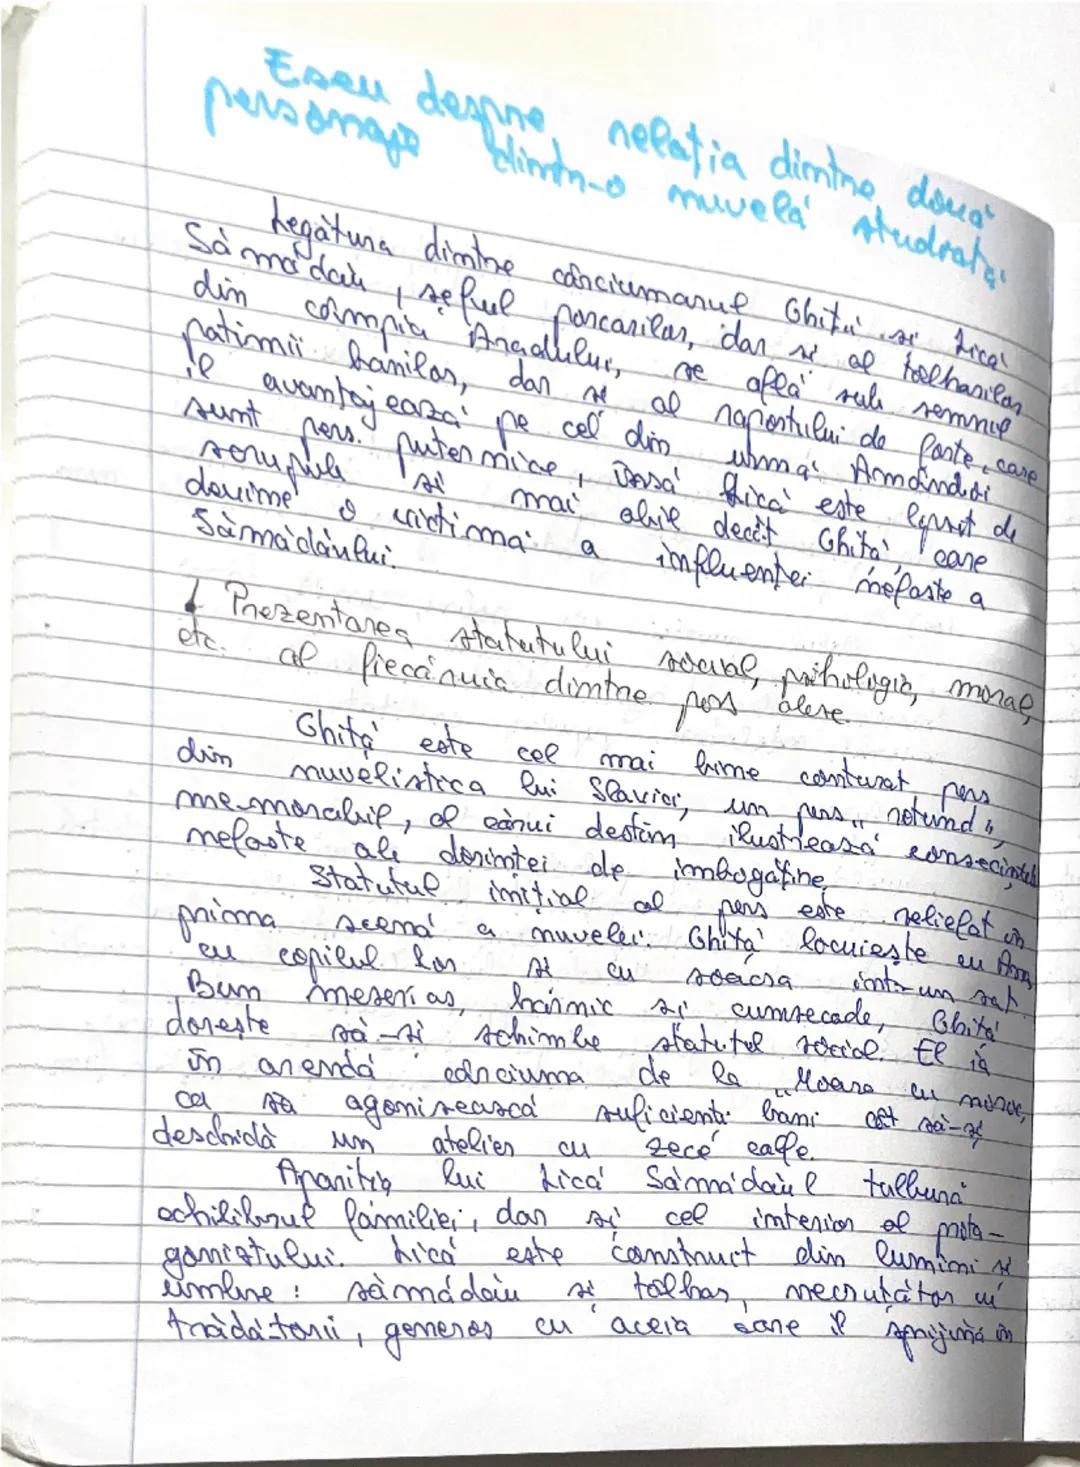 Eseu despre relația dintre două
personaje dintr-o nuvelă studiată
Legătura dintre cârciumarul Ghiță și Lică
Sămădău, șeful porcarilor, dar și al tâlharilor
din câmpia Aradului, se află sub semnul
patimii banilor, dar și al raportului de forțe, care
îl avantajează pe cel din urmă. Amândoi
sunt pers. puternice, însă Lică este lipsit de
scrupule și mai abil decât Ghiță, care
devine o victimă a influenței nefaste a
Sămădăului.
Prezentarea statutului social, psihologic, moral,
etc. al fiecăruia dintre pers alese
Ghiță este cel mai bine conturat pers
din nuvelistica lui Slavici, un pers „rotund",
memorabil, al cărui destin ilustrează consecințele
nefaste ale dorinței de îmbogățire.
Statutul inițial al pers este reliefat în
prima scenă a nuvelei. Ghiță locuiește cu Ana,
cu copilul lor și cu soacra într-un sat.
Bun meseriaș, harnic și cumsecade, Ghiță
dorește să-și schimbe statutul social. El ia
în arendă cârciuma de la „Moara cu noroc,
ca să agonisească suficienti bani cât să-și
deschidă un atelier cu zece calfe.
Apariția lui Lică Sămădăul tulbură
echilibrul familiei, dar și cel interior al prota-
gonistului. Lică este construct din lumini și
umbre: sămădău și tâlhar, necruțător cu
trădătorii, generos cu aceia care îl sprijină în